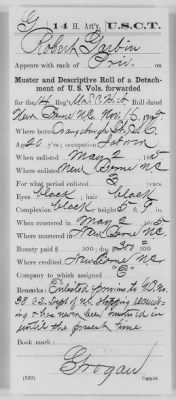 G | 14 H. Art'y. | U.S.C.T.
Robert Garbin
Appears with rank of Priv. on
Muster and Descriptive Roll of a Detachment
of U. S. Vols. forwarded
for the 14 Reg't U.S.C. H.A. Roll dated
New Berne N.C. Nov. 16, 1865.
Where born Orangeburgh S.C.
Age 20 y'rs; occupation Laborer
When enlisted May 2, 1865.
Where enlisted New Berne N.C.
For what period enlisted 3 years.
Eyes black; hair black
Complexion black; height 5 ft. in.
When mustered in May 2, 1865.
Where mustered in New Berne N.C.
Bounty paid $ 100; due $ 300 100
Where credited New Berne N.C.
Company to which assigned "G"
Remarks: Enlisted previous to G.O. No.
38 C.S. Dept of N.C. stopping recruiting
& has never been mustered in
until the present time
Book mark:
Grogan
(339) Copyist.